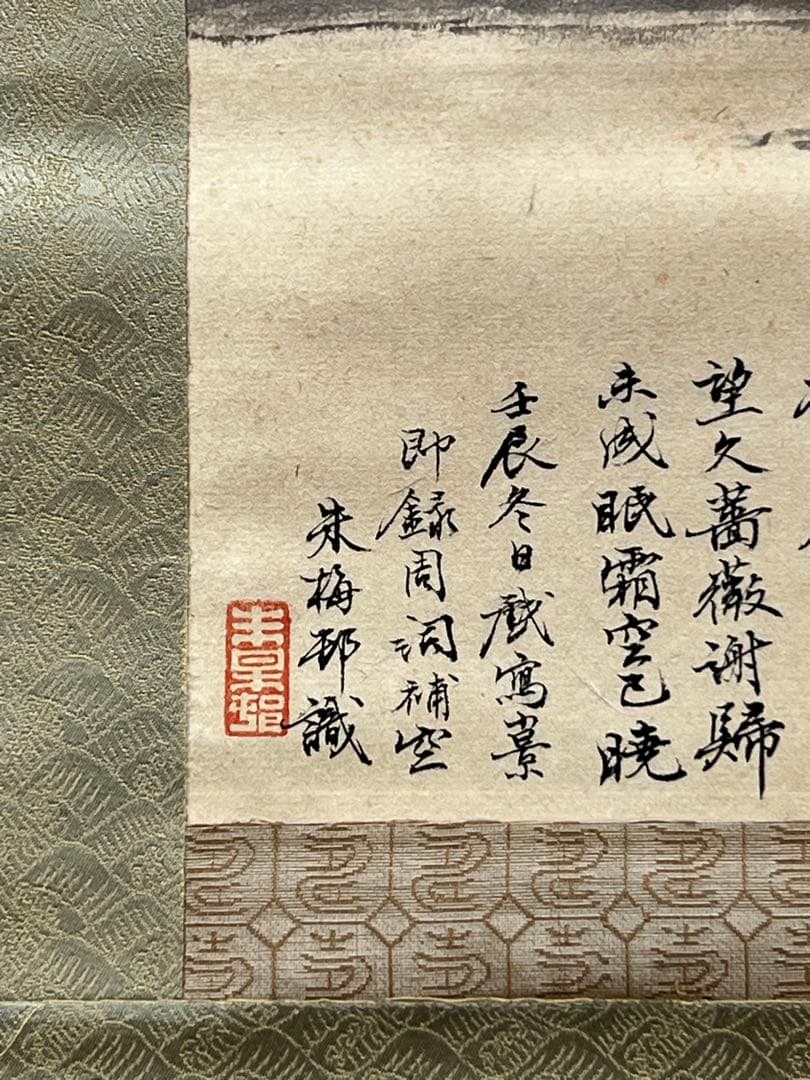 望久薔薇謝歸
未成眠霜空已曉
壬辰冬日戲寫景
即錄周詞補空
朱梅邨識
朱梅邨